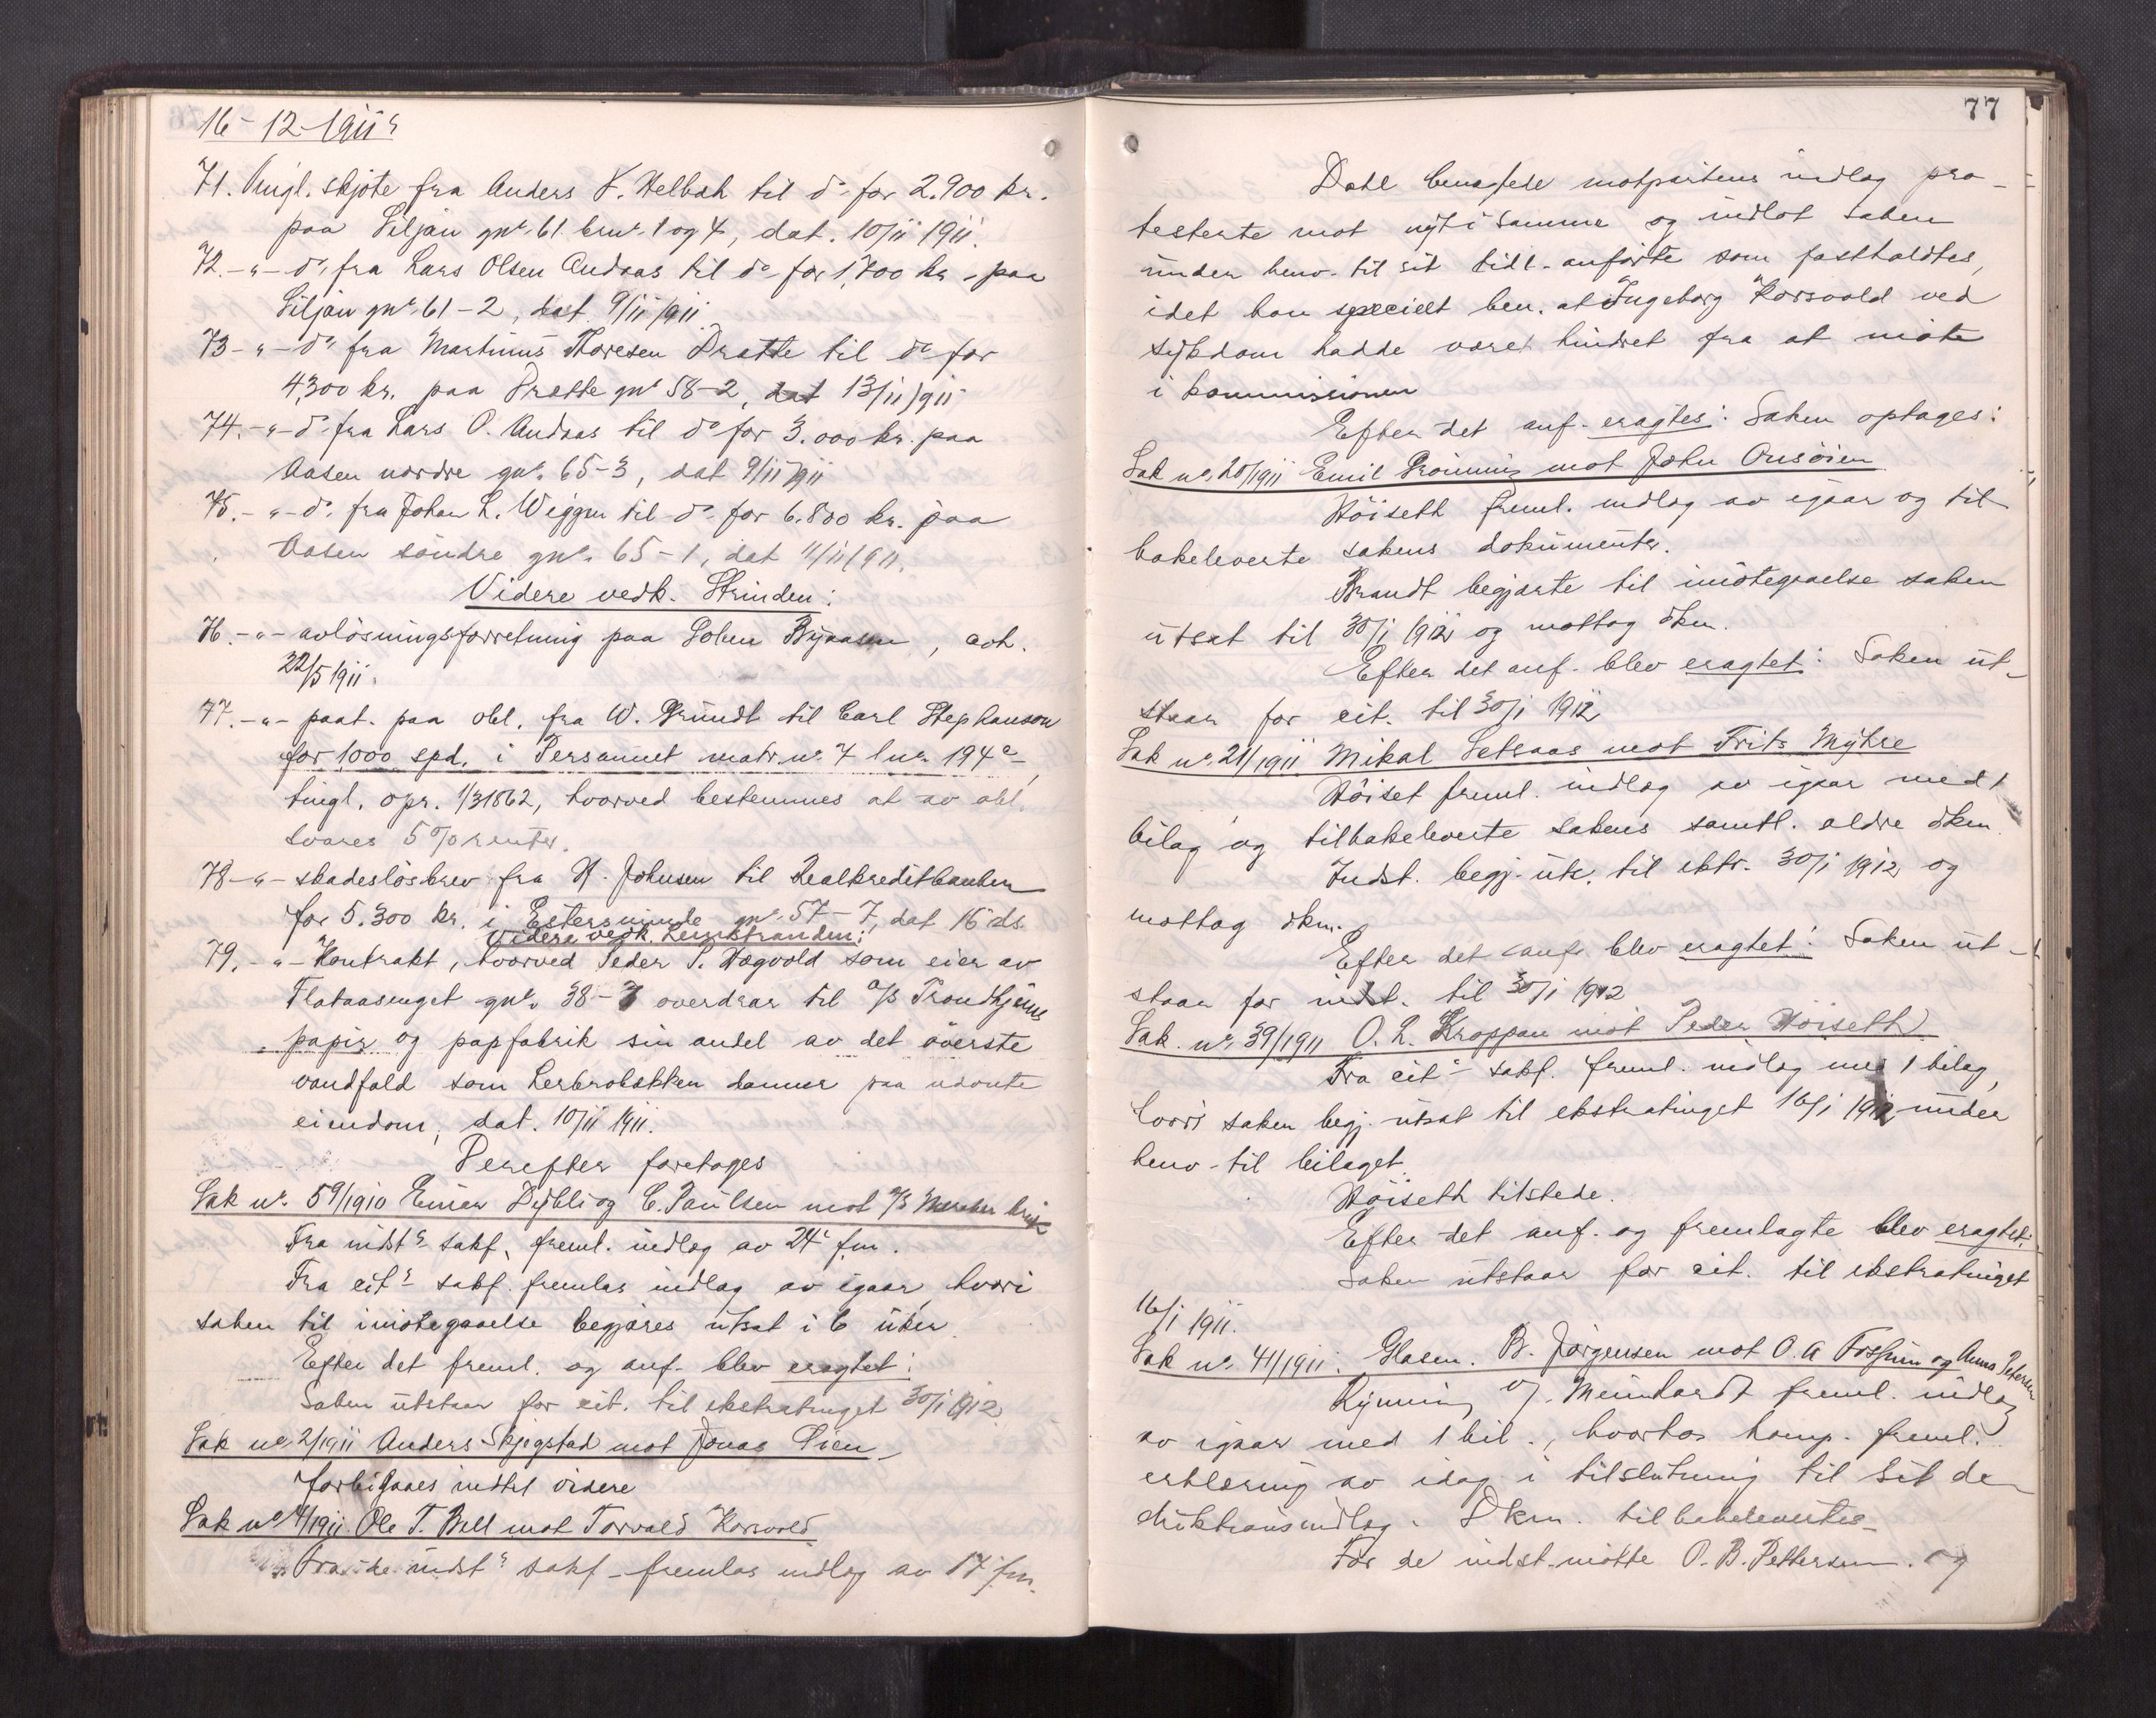 16-12-1911
71. Tingl. skjøte fra Anders K. Helbak til do for 2.900 kr.
paa Siljan gnr. 61 bnr. 1 og 4, dat. 10/11 1911.
72. -"- do fra Lars Olsen Andaas til do for 1,700 kr. paa
Siljan gnr. 61-2, dat. 9/11 1911
73 -"- do fra Martinus Thoresen Dratte til do for
4,300 kr. paa Dratte gnr 58-2, dat 13/11 1911
74. -"- do fra Lars O. Andaas til do for 3.000 kr. paa
Aasen nordre gnr. 65-3, dat 9/11 1911
75. -"- do. fra Johan L. Wiggen til do for 6.800 kr. paa
Aasen søndre gnr. 65-1, dat 11/11 1911.
Videre vedk. Strinden:
76. -"- avløsningsforretning paa Byaasen, avh.
22/5 1911.
77. -"- paat. paa obl. fra W. Gründt til Carl Stephanson
for 1000 spd. i matr. nr. 7 lnr. 194a
tingl. opr. 1/3 1862, hvorved bestemmes at av obl.
svares 5 % renter.
78 -"- skadesløsbrev fra H. Johnsen til Realkreditbanken
for 5.300 kr. iEstersminde gnr. 57-7, dat 16 ds.
Videre vedk. Leinstranden:
79. -"- Kontrakt, hvorved Peder P. Hægvold som eier av
Flataasenget gnr. 38-3 overdrar til a/s Trondhjems
papir og papfabrik sin andel av det øverste
vandfald som Lerbrobækken danner paa nævnte
eiendom, dat. 10/11 1911.
Derefter foretages
Sak nr. 59/1910 Einar Dybli og C. Paulsen mot a/s Meraker
Fra indst. sakf. freml. indlæg av 24 f.m.
Fra cit. sakf. fremlæs indlæg av igaar, hvori
saken til imøtegaaelse begjæres utsat i 6 uker
Efter det freml. og anf. blev eragtet:
Saken utstaar for cit. til ekstratinget 30/1 1912
Sak nr. 2/1911 Anders Skjegstad mot Jonas Oien
forbigaaes indtil videre
Sak nr. 4/1911 Ole T. Bell mot Torvald Korsvold
Fra de indst. sakf. fremlæs indlæg av 17 f.m.
77
Dahl benægtede motpartens indlæg pro-
testerte mot nyt i samme og indlot saken
under henv. til sit tidl. anførte som fastholdtes,
idet han specielt bem. at Ingeborg Korsvold ved
sykdom hadde været hindret fra at møte
i kommissionen
Efter det anf. eragtes: Saken optages:
Sak nr. 20/1911 Emil Grönning mot John Onsöien
Høiseth freml. indlæg av igaar og til-
bakeleverte sakens dokumenter.
Brandt begjærte til imøtegaaelse saken
utsat til 30/1 1912 og mottog dkm.
Efter det anf. blev eragtet: Saken ut-
staar for cit. til 30/1 1912
Sak nr. 21/1911 Mikal Setsaas mot Frits Myhre
Høiset freml. indlæg av igaar med 1
bilag og tilbakeleverte sakens samtl. ældre dkm.
Indst. begj. uts. til ekstr. 30/1 1912 og
mottog dkm.
Efter det anf. blev eragtet: Saken ut-
staar for indst. til 30/1 1912
Sak. nr. 39/1911 O. L. Kroppan mot Peder Høiseth
Fra cit. sakf. freml. indlæg med 1 bilag,
hvori saken begj. utsat til ekstratinget 16/1 1912 under
henv. til bilaget.
Høiseth tilstede.
Efter det anf. og fremlagte blev eragtet:
Saken utstaar for cit. til ekstratinget
16/1 1911.
Sak nr. 41/1911. Glasm. B. Jørgensen mot O. A. Fossum og Anna Petersen
Rynning v/ Meinhardt freml. indlæg
av igaar med 1 bil., hvorhos komp. freml.
erklæring av idag i tilslutning til sit de-
duktionsindlæg. Dkm. tilbakelevertes
For de indst. møtte O. B. Pettersen og